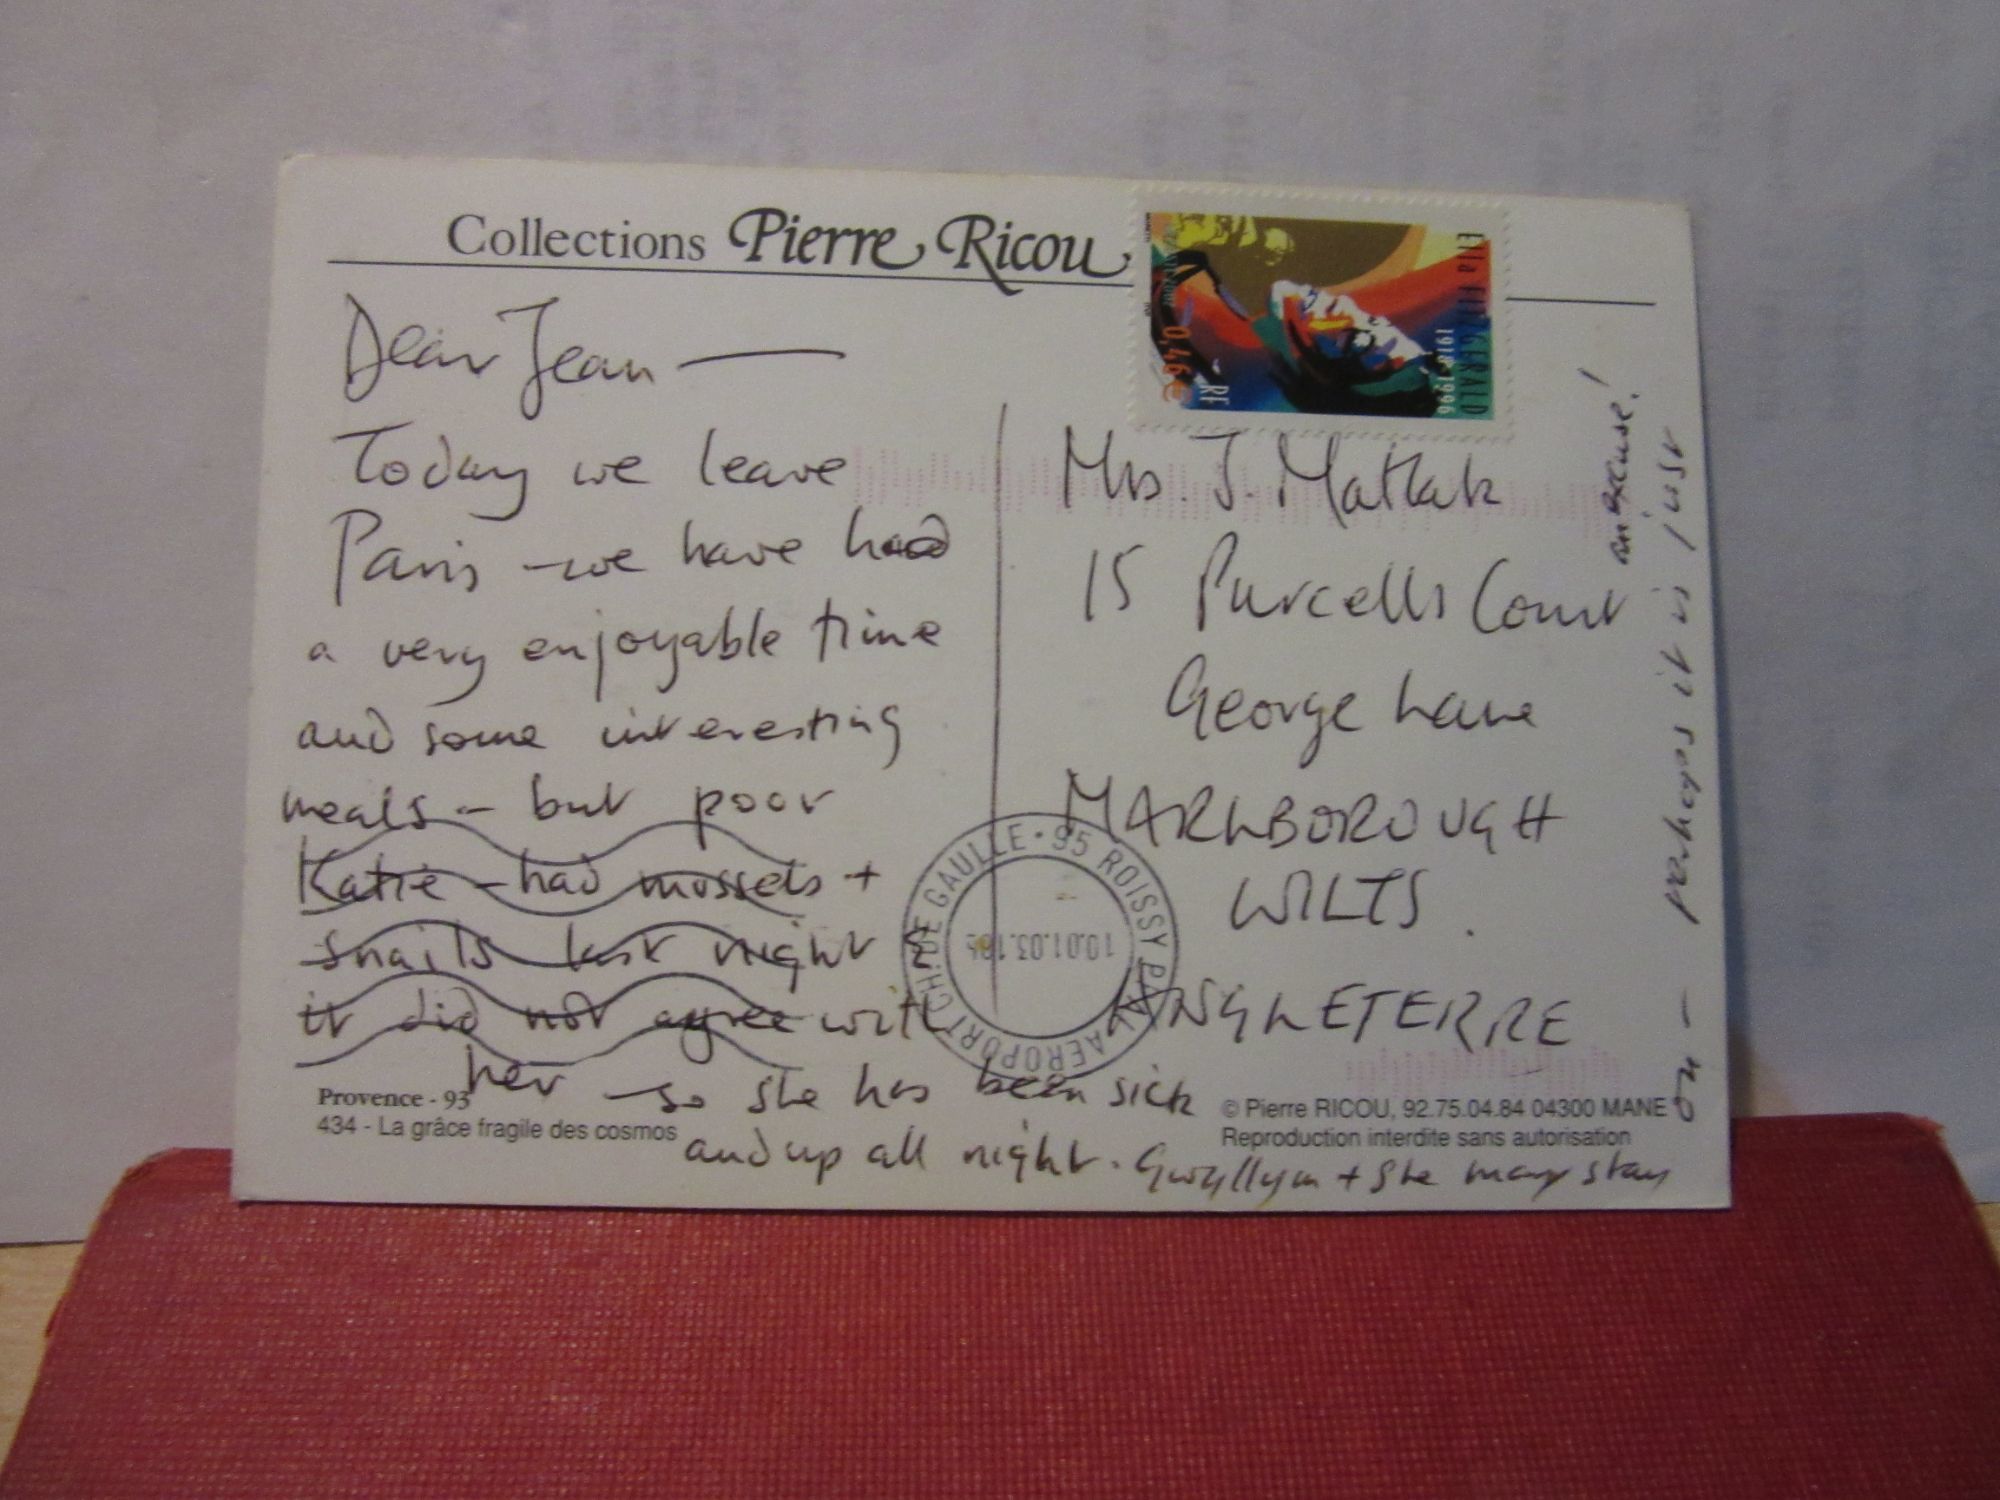 Collections Pierre Ricou
Ella FITZGERALD
1918-1996
0,46€
RF
Dear Jean —
Today we leave
Paris - we have had
a very enjoyable time
and some interesting
meals - but poor
Katie - had mussels +
snails last night
it did not agree with
her - so she has been sick
and up all night. Gwyllym + she may stay
on - perhaps it is just
an excuse!
Mrs. J. Matlak
15 Purcells Court
George Lane
MARLBOROUGH
WILTS.
ANGLETERRE
95 ROISSY PAL AEROPORT CH. DE GAULLE
10.01.03
Provence - 93
434 - La grâce fragile des cosmos
© Pierre RICOU, 92.75.04.84 04300 MANE
Reproduction interdite sans autorisation